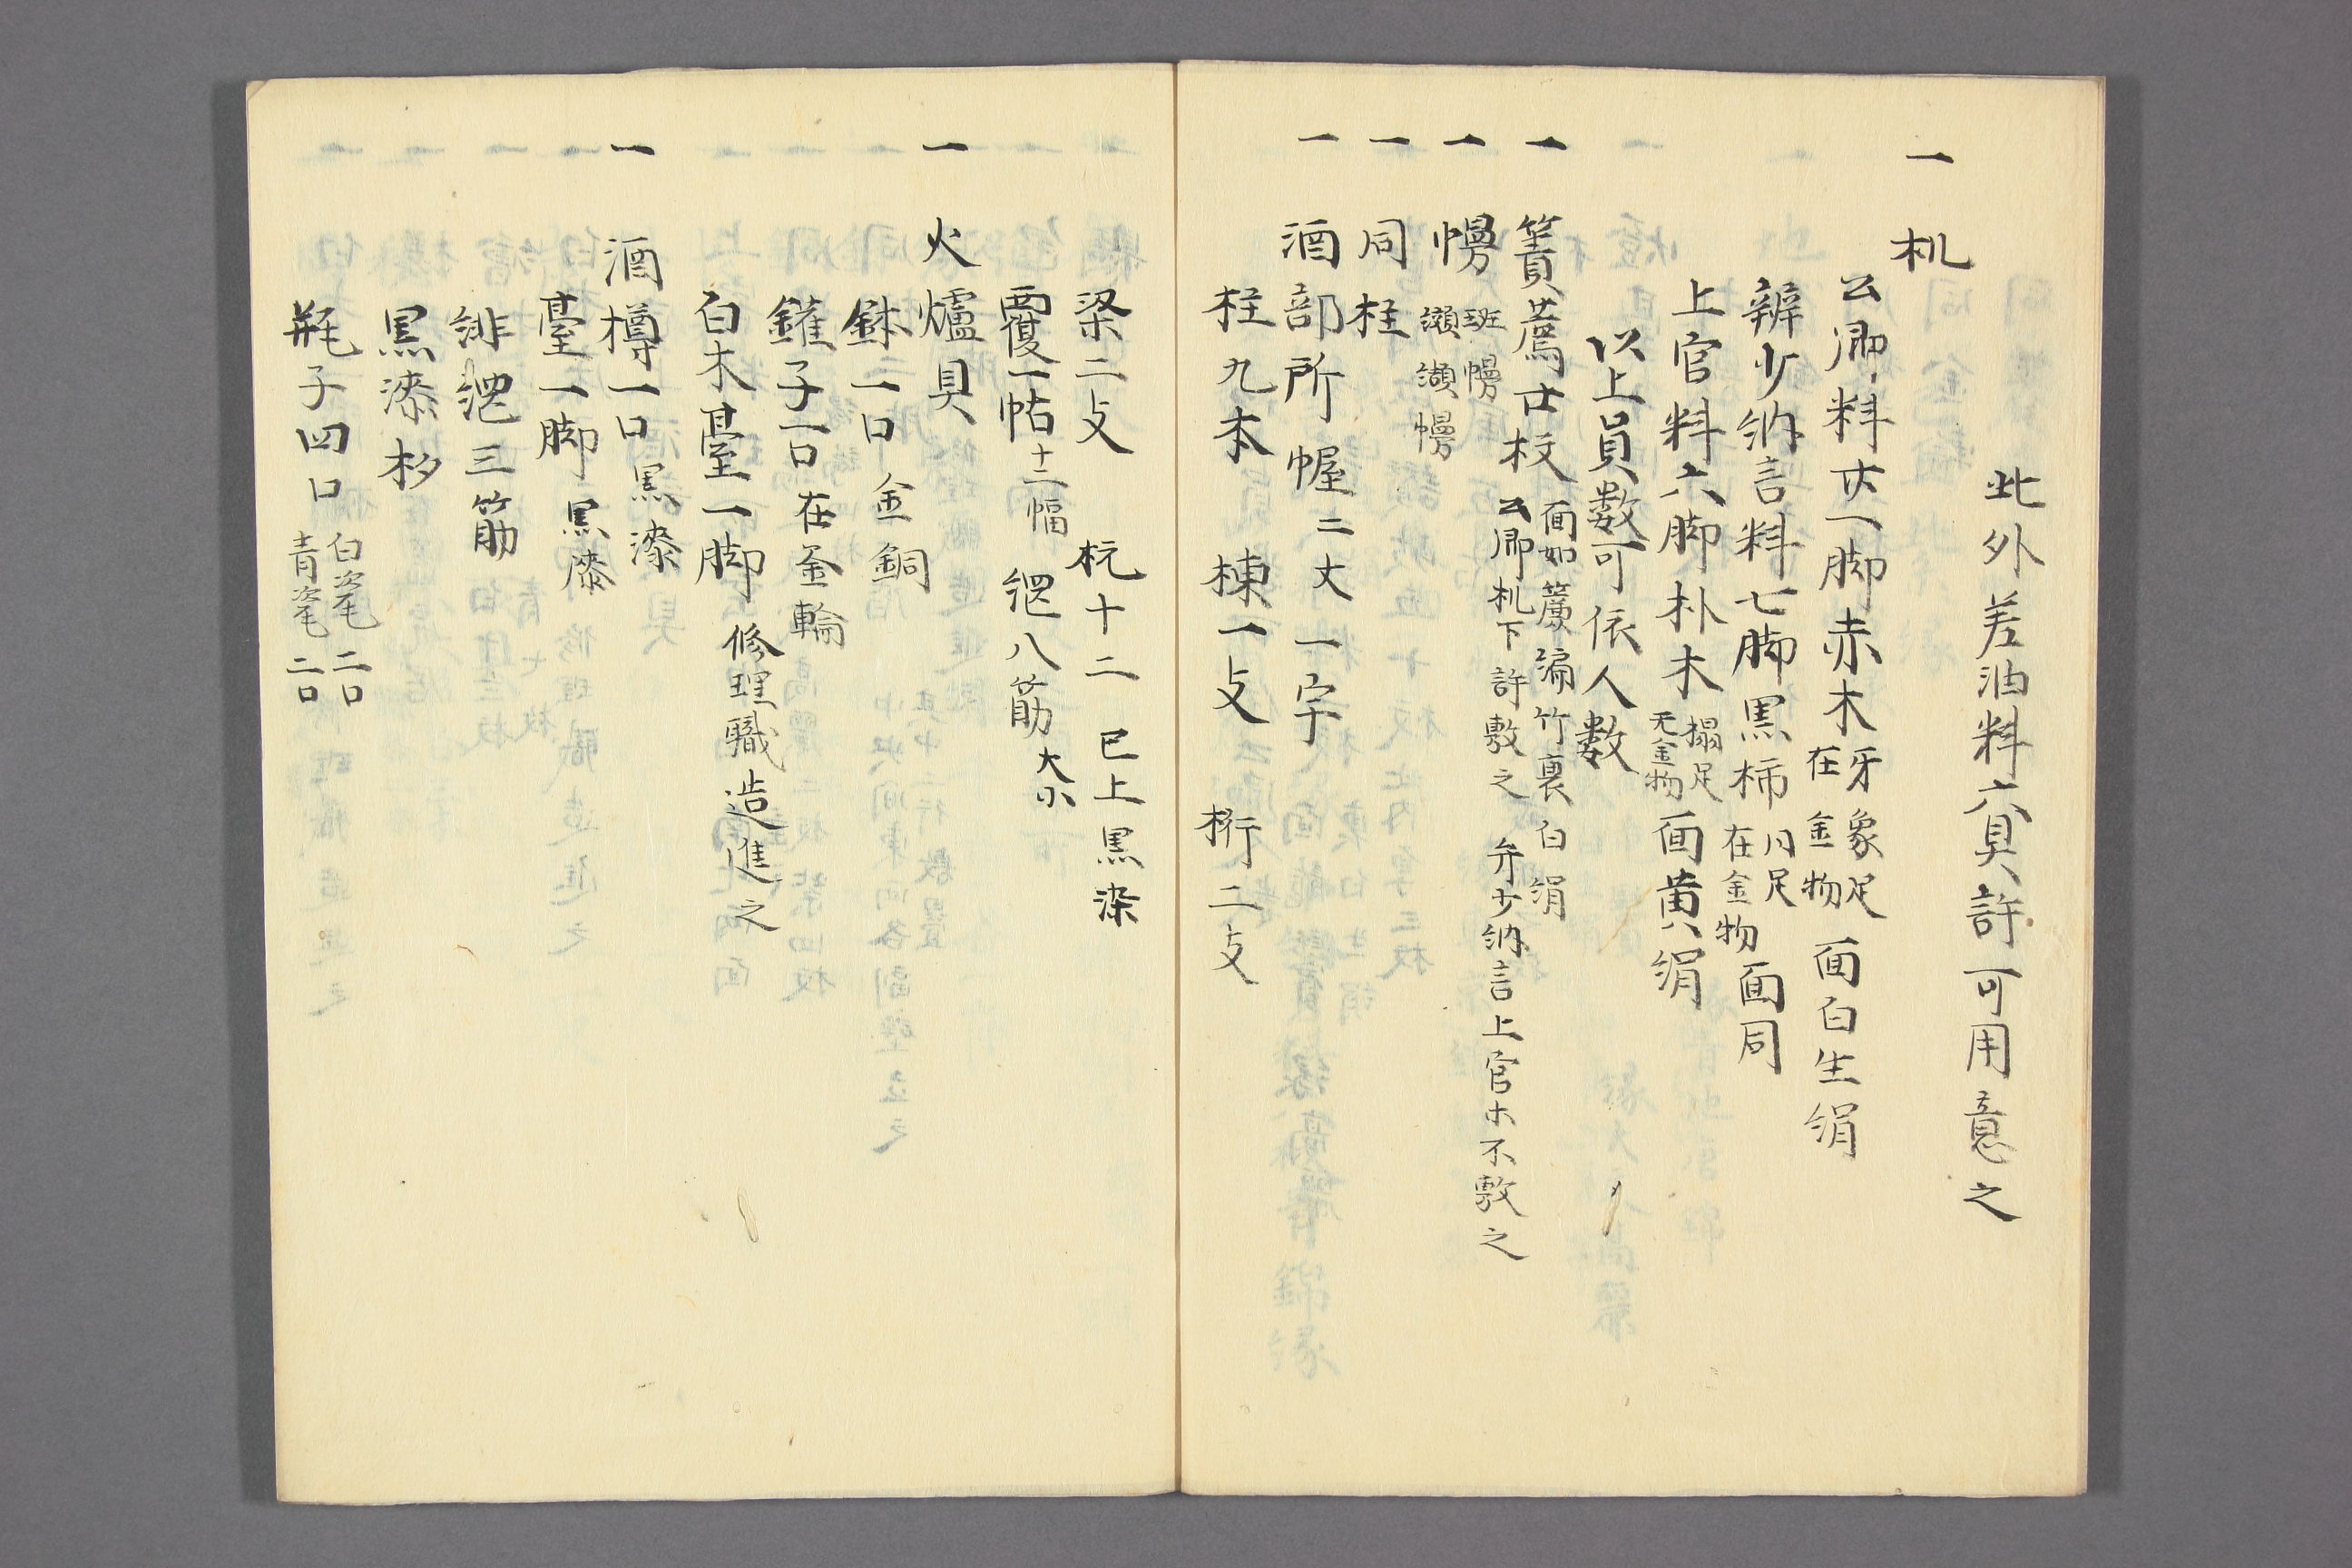 此外差油料六具許可用意之
一 机
公卿料廿一脚赤木 牙象足 在金物 面白生絹
辨少納言料七脚黒柿 同足 在金物 面同
上官料六脚朴木 榻足 无金物 面黄絹
以上員数可依人数
一 簀薦廿枚 面如簾編竹裏白絹
公卿机下許敷之 弁少納言上官ホ不敷之
一 幔 班幔 纐纈幔
一 同柱
一 酒部所幄二丈一宇
柱九本 棟一支 桁二支
梁二支 杭十二 已上黒染
覆一帖 十二幅 綱八筋 大小
一 火爐具
鉢一口 金銅
鑵子一口 在金輪
白木臺一脚 修理職造進之
一 酒樽一口 黒漆
臺一脚 黒漆
緋綱三筋
黒漆杓
瓶子四口 白瓷二口 青瓷二口